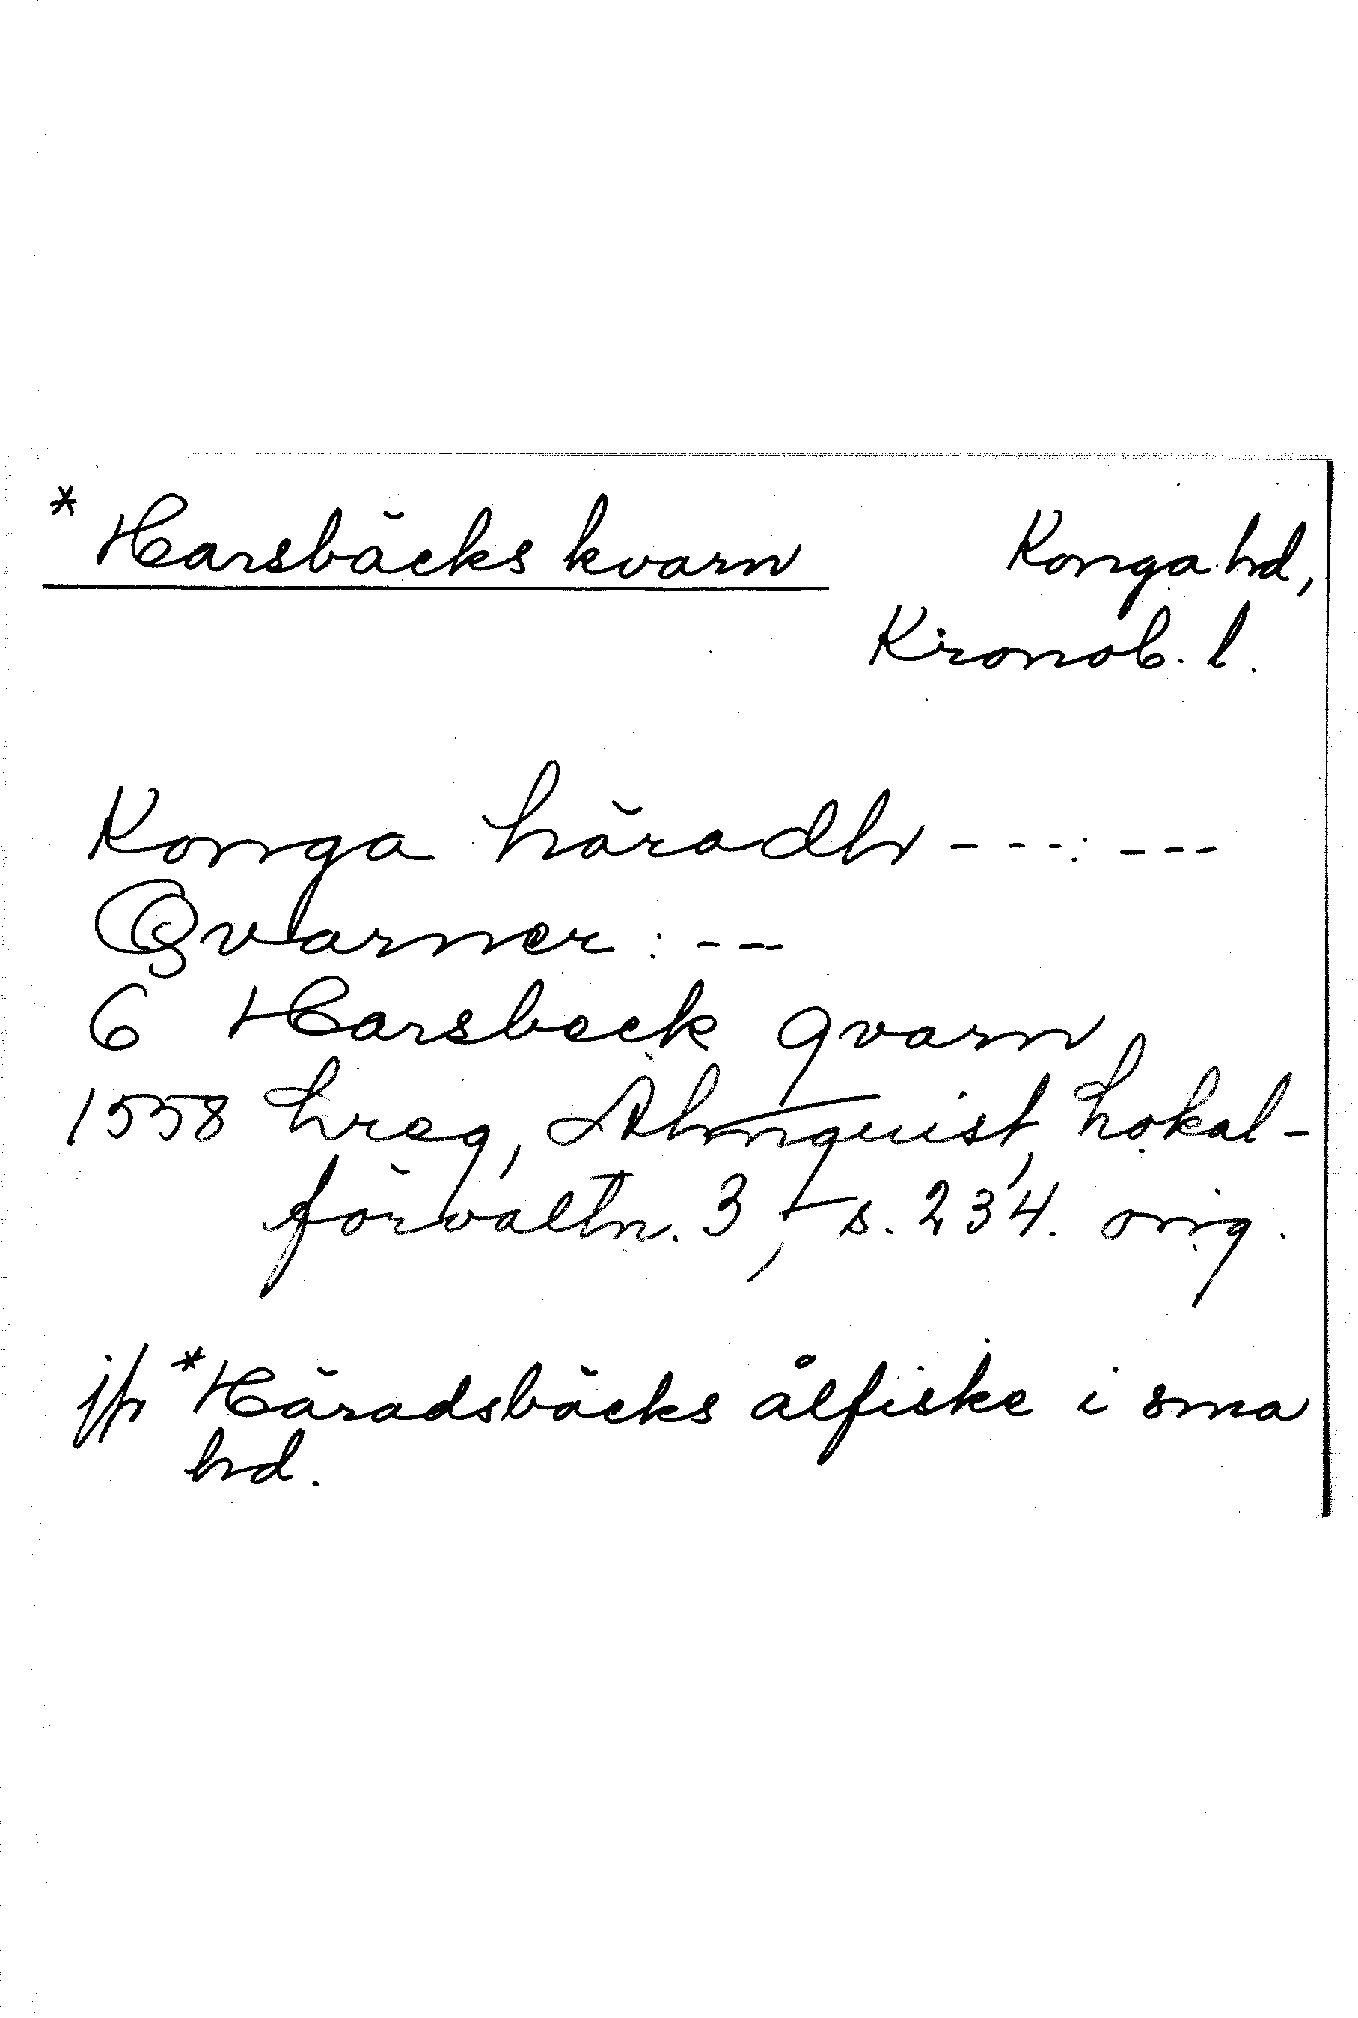 * Harsbäcks kvarn Konga hd,
Kronob. l.
Konga häradh ---:---
Qvarner: ---
6 Harsbeck qvarn
1558 hreg, Almquist, Lokal-
förvaltn. 3, s. 234. orig.
jfr *Häradsbäcks ålfiske i sma
hd.